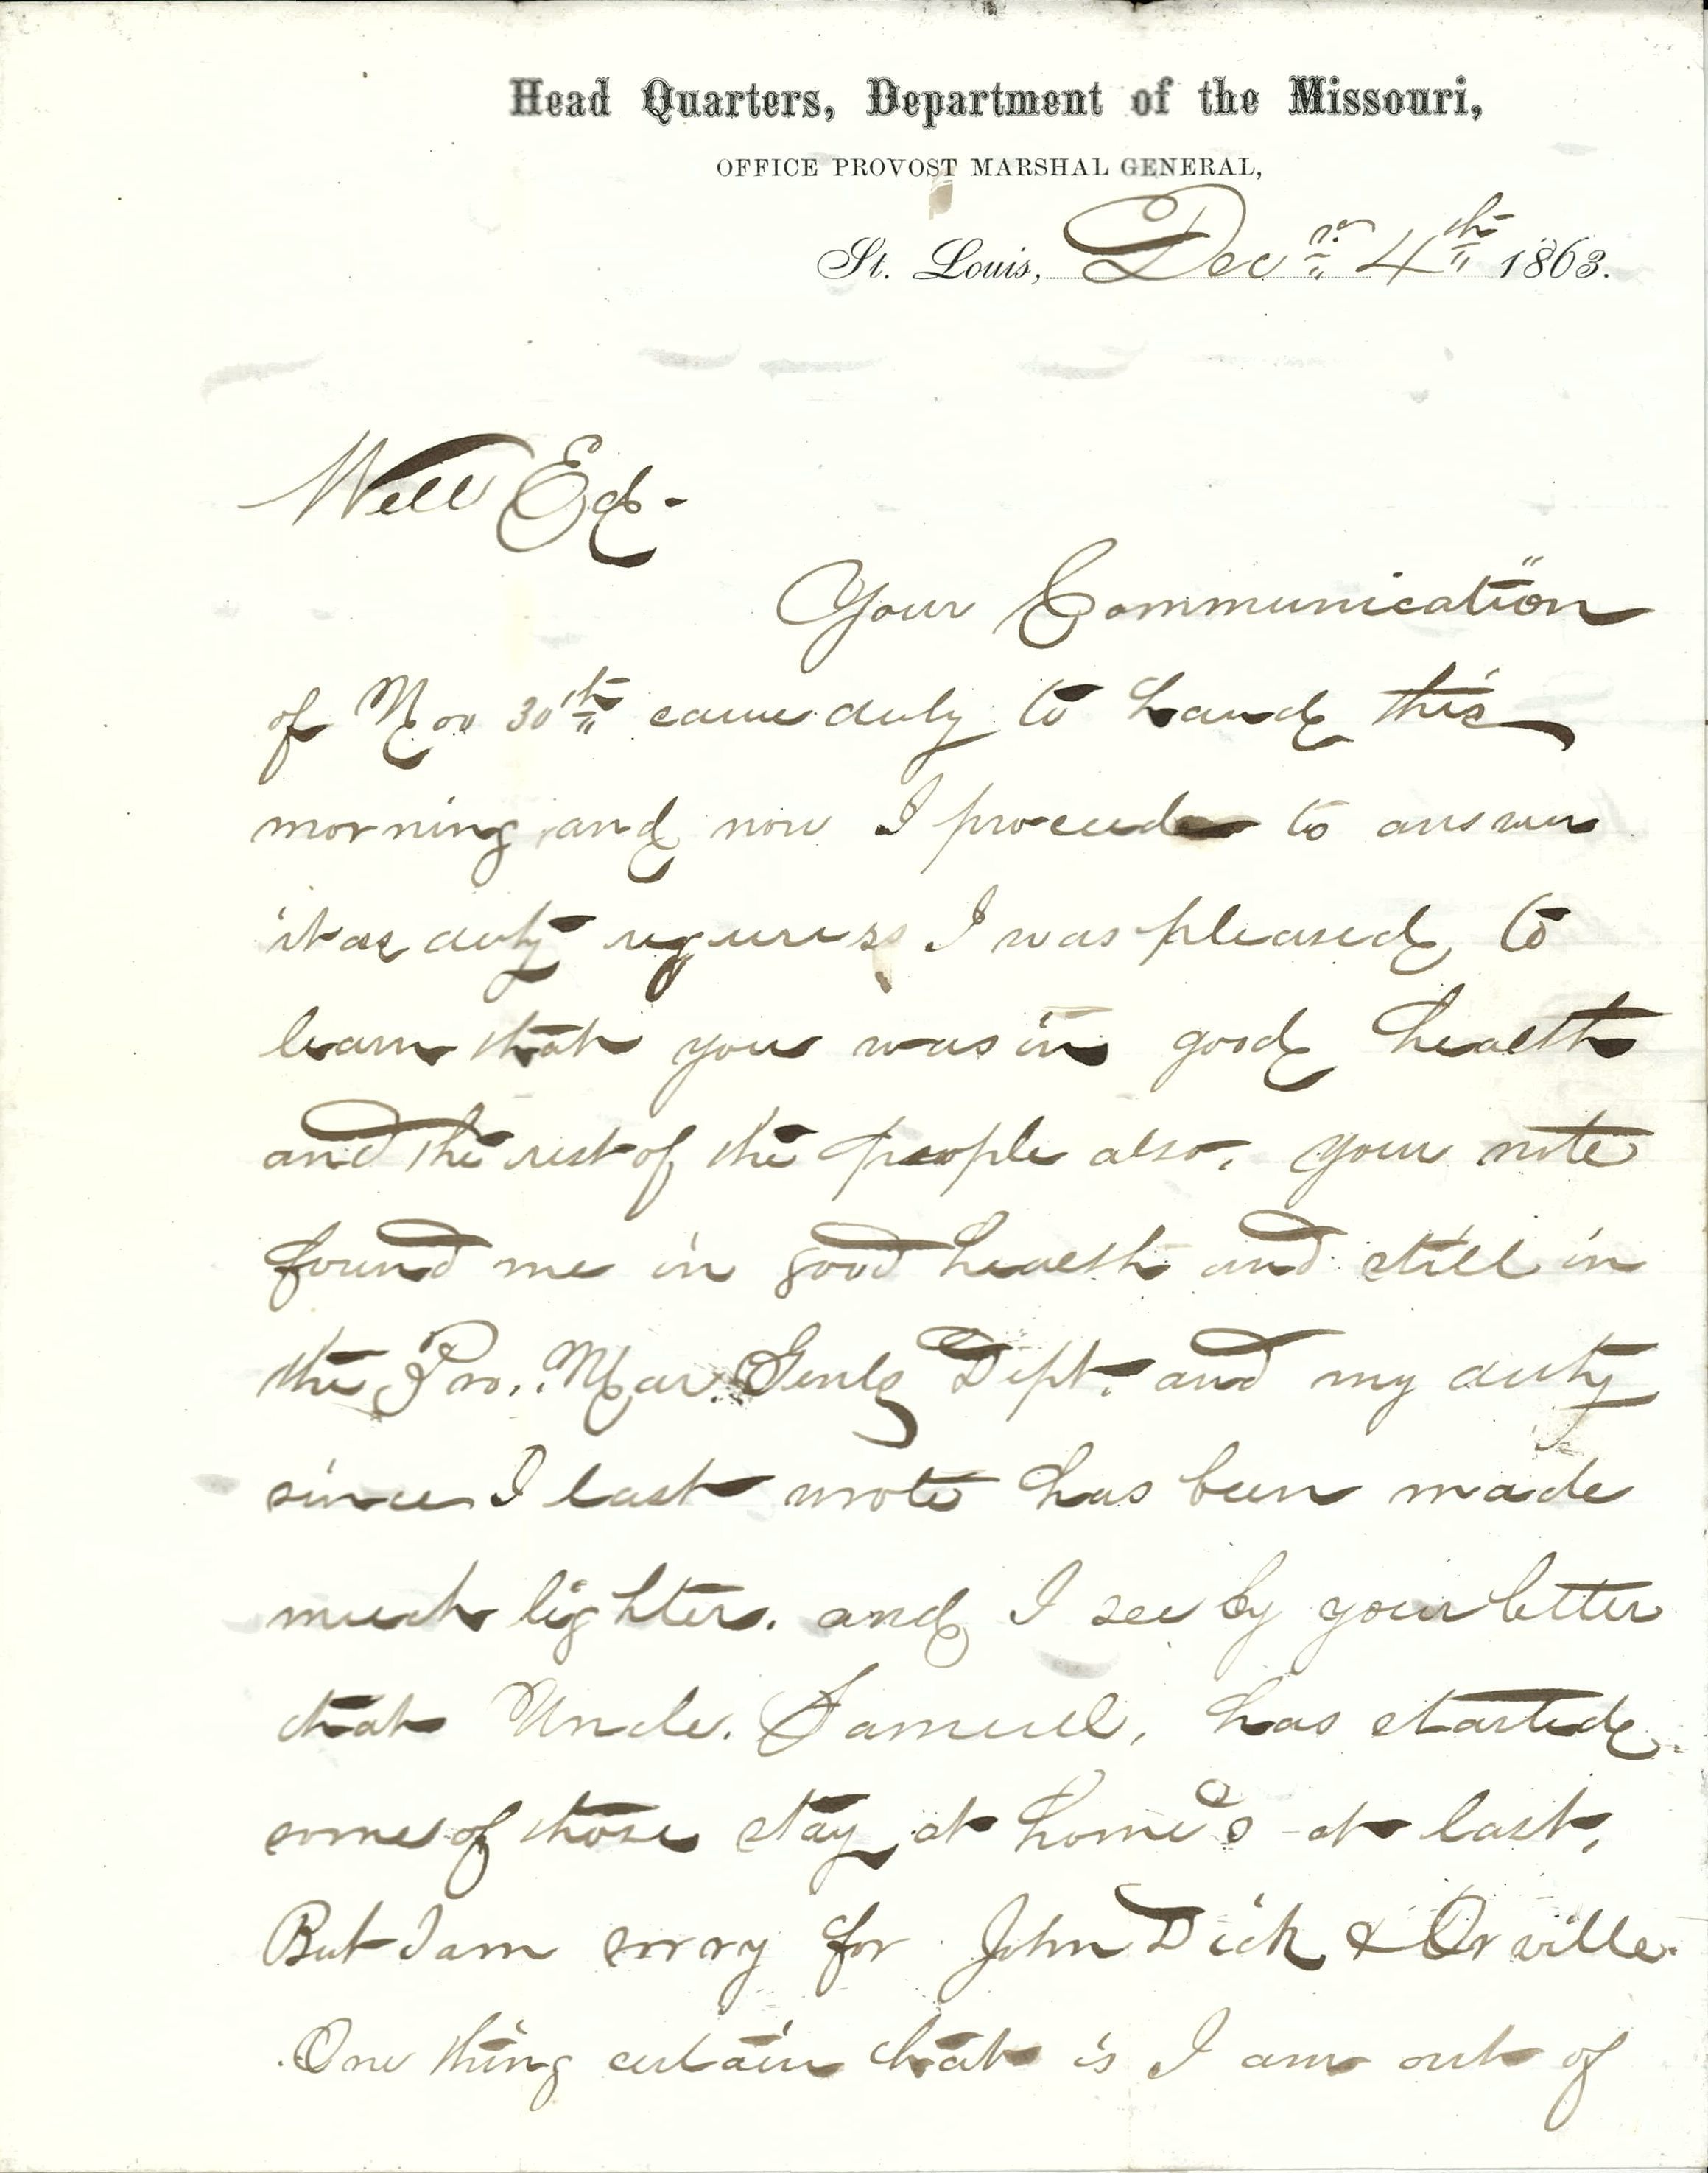 Head Quarters, Department of the Missouri,
OFFICE PROVOST MARSHAL GENERAL,
St. Louis, Decr 4th 1863.
Well Ed-
Your Communication
of Nov 30th came duly to hand this
morning and now I proceed to answer
it as duty requires I was pleased to
learn that you was in good health
and the rest of the people also. your note
found me in good health and still in
the Pro. Mar. Genls Dept. and my duty
since I last wrote has been made
much lighter. and I see by your letter
that Uncle. Samuel, has started
some of those stay at home's at last,
But I am sorry for John Dick & Orville.
One thing certain that is I am out of